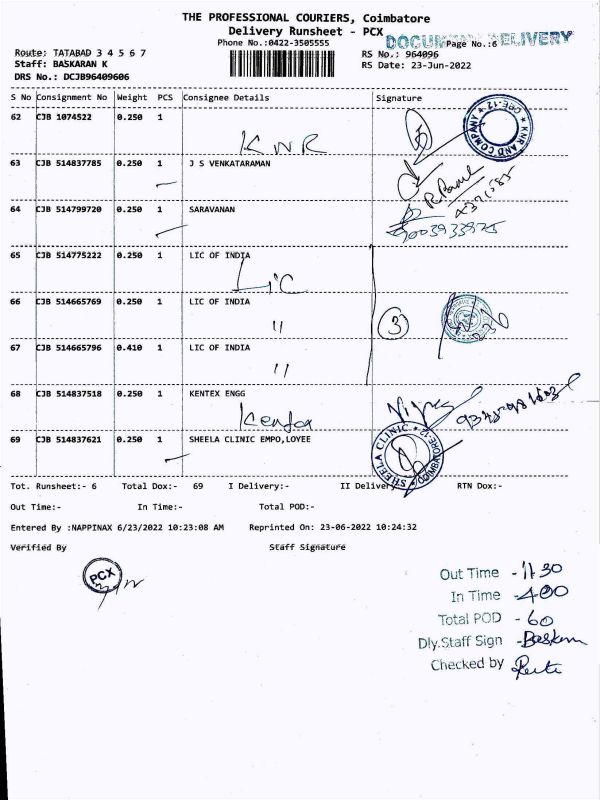 THE PROFESSIONAL COURIERS, Coimbatore
Delivery Runsheet - PCX
Phone No.:0422-3505555
DOCUMENT DELIVERY
Page No.:6
Route: TATABAD 3 4 5 6 7
RS No.: 964096
Staff: BASKARAN K
RS Date: 23-Jun-2022
DRS No.: DCJB96409606
S No Consignment No Weight PCS Consignee Details Signature
62 CJB 1074522 0.250 1
KNR
KNR AND COMPANY * CBE-12 *
63 CJB 514837785 0.250 1 J S VENKATARAMAN
64 CJB 514799720 0.250 1 SARAVANAN
9003933975
65 CJB 514775222 0.250 1 LIC OF INDIA
LiC
66 CJB 514665769 0.250 1 LIC OF INDIA
"
3
67 CJB 514665796 0.410 1 LIC OF INDIA
"
68 CJB 514837518 0.250 1 KENTEX ENGG
Kentex
69 CJB 514837621 0.250 1 SHEELA CLINIC EMPO,LOYEE
SHEELA CLINIC * COIMBATORE-12 *
Tot. Runsheet:- 6 Total Dox:- 69 I Delivery:- II Delivery RTN Dox:-
Out Time:- In Time:- Total POD:-
Entered By :NAPPINAX 6/23/2022 10:23:08 AM Reprinted On: 23-06-2022 10:24:32
Verified By Staff Signature
PCX
Out Time - 11 30
In Time - 400
Total POD - 60
Dly.Staff Sign - Baskaran
Checked by